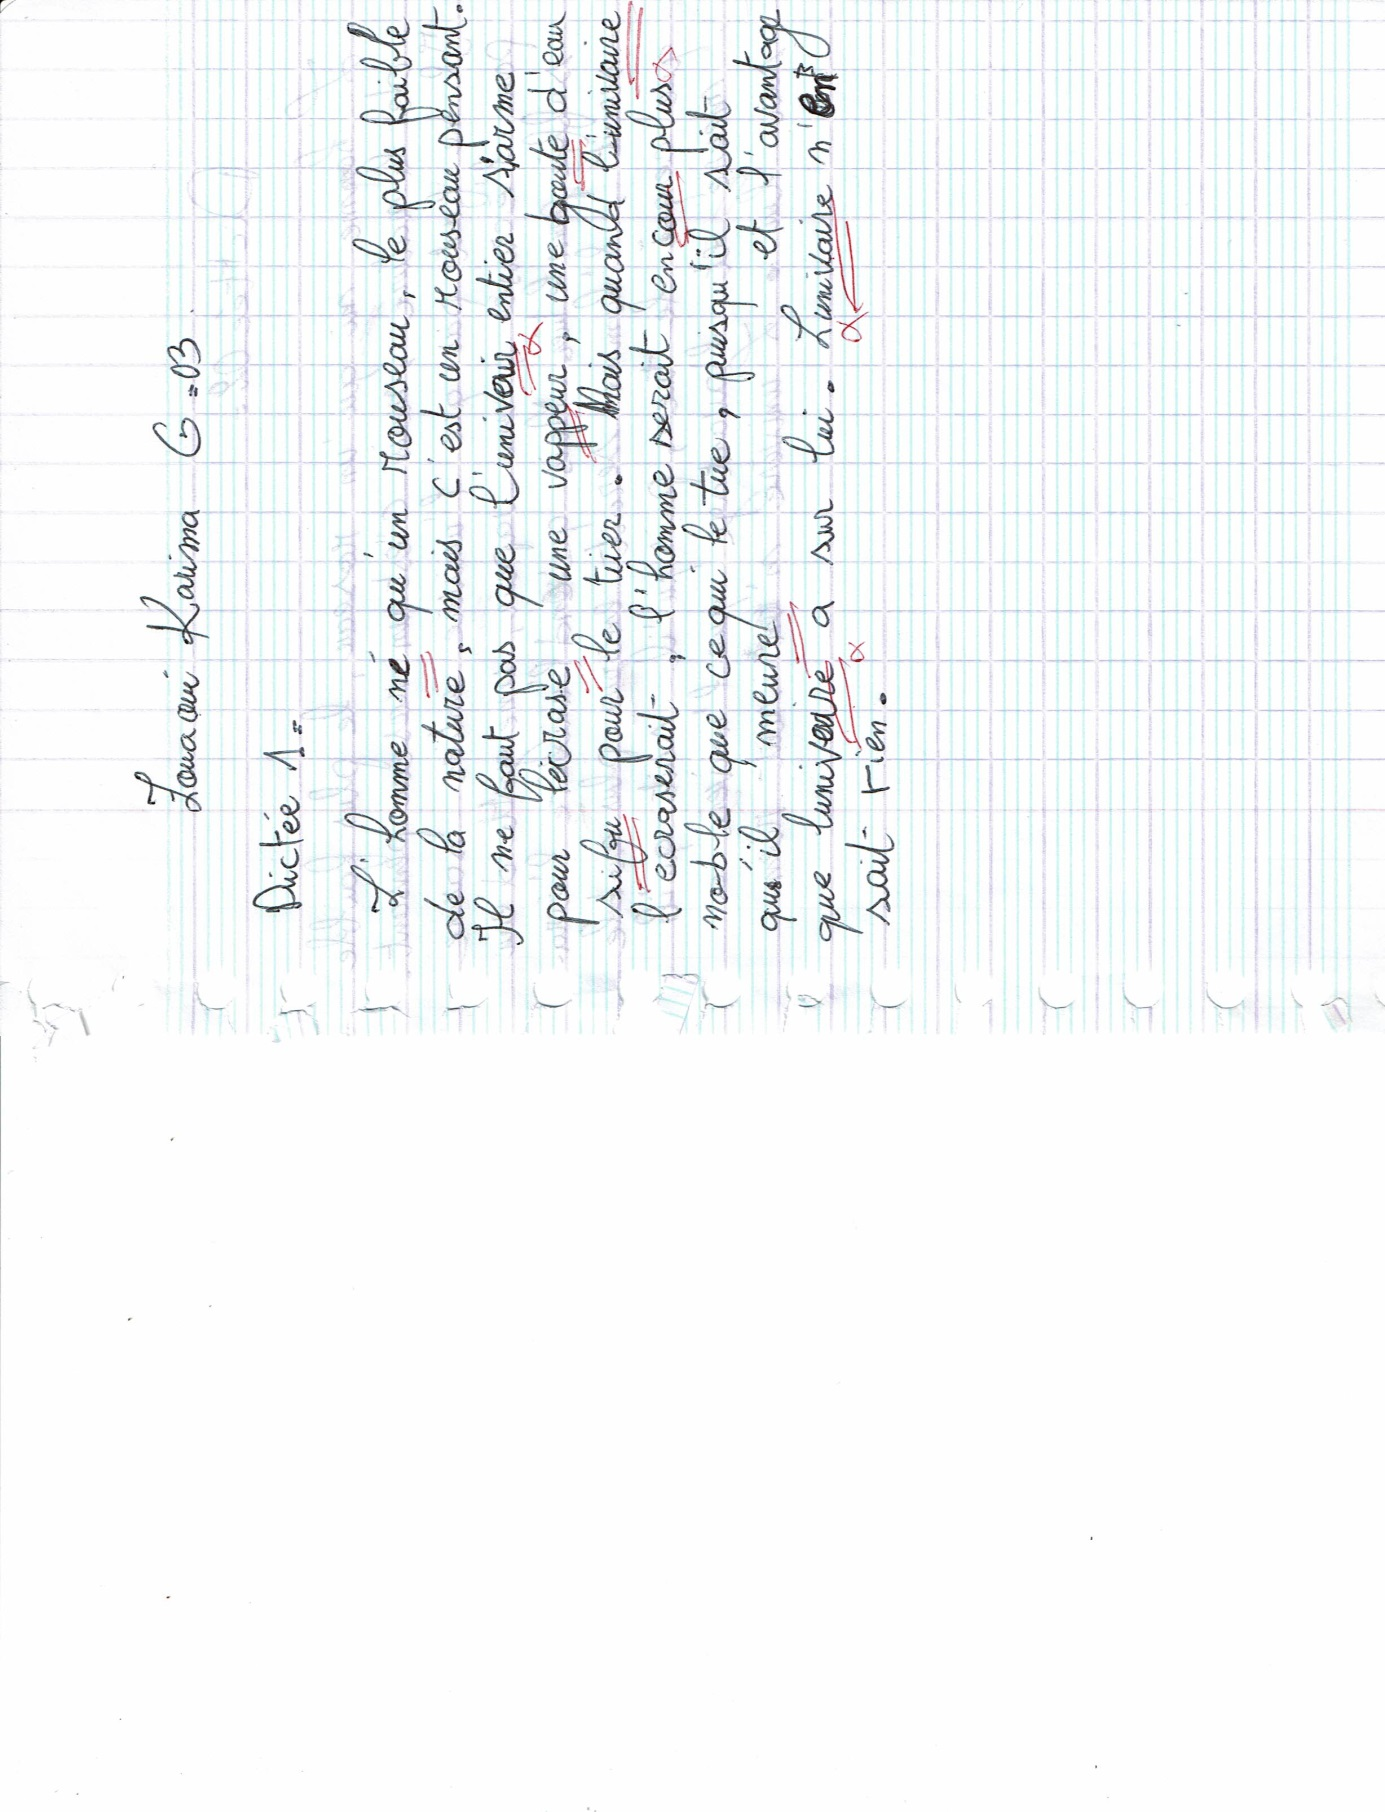 Zouaoui Karima G=03
Dictée 1=
L'homme né qu'un rouseau, le plus faible
de la nature, mais c'est un rouseau pensant.
Il ne faut pas que l'univerir entier s'arme
pour l'écrasé une vappeur, une goute d'eau
sifqu pour le tuer. Mais quand l'univaire
l'ecraserait, l'homme serait encour plus
noble que ce qui le tue, puisqu'il sait
qu'il meure et l'avantage
que luniverse a sur lui. Lunivaire n'en
sait rien.